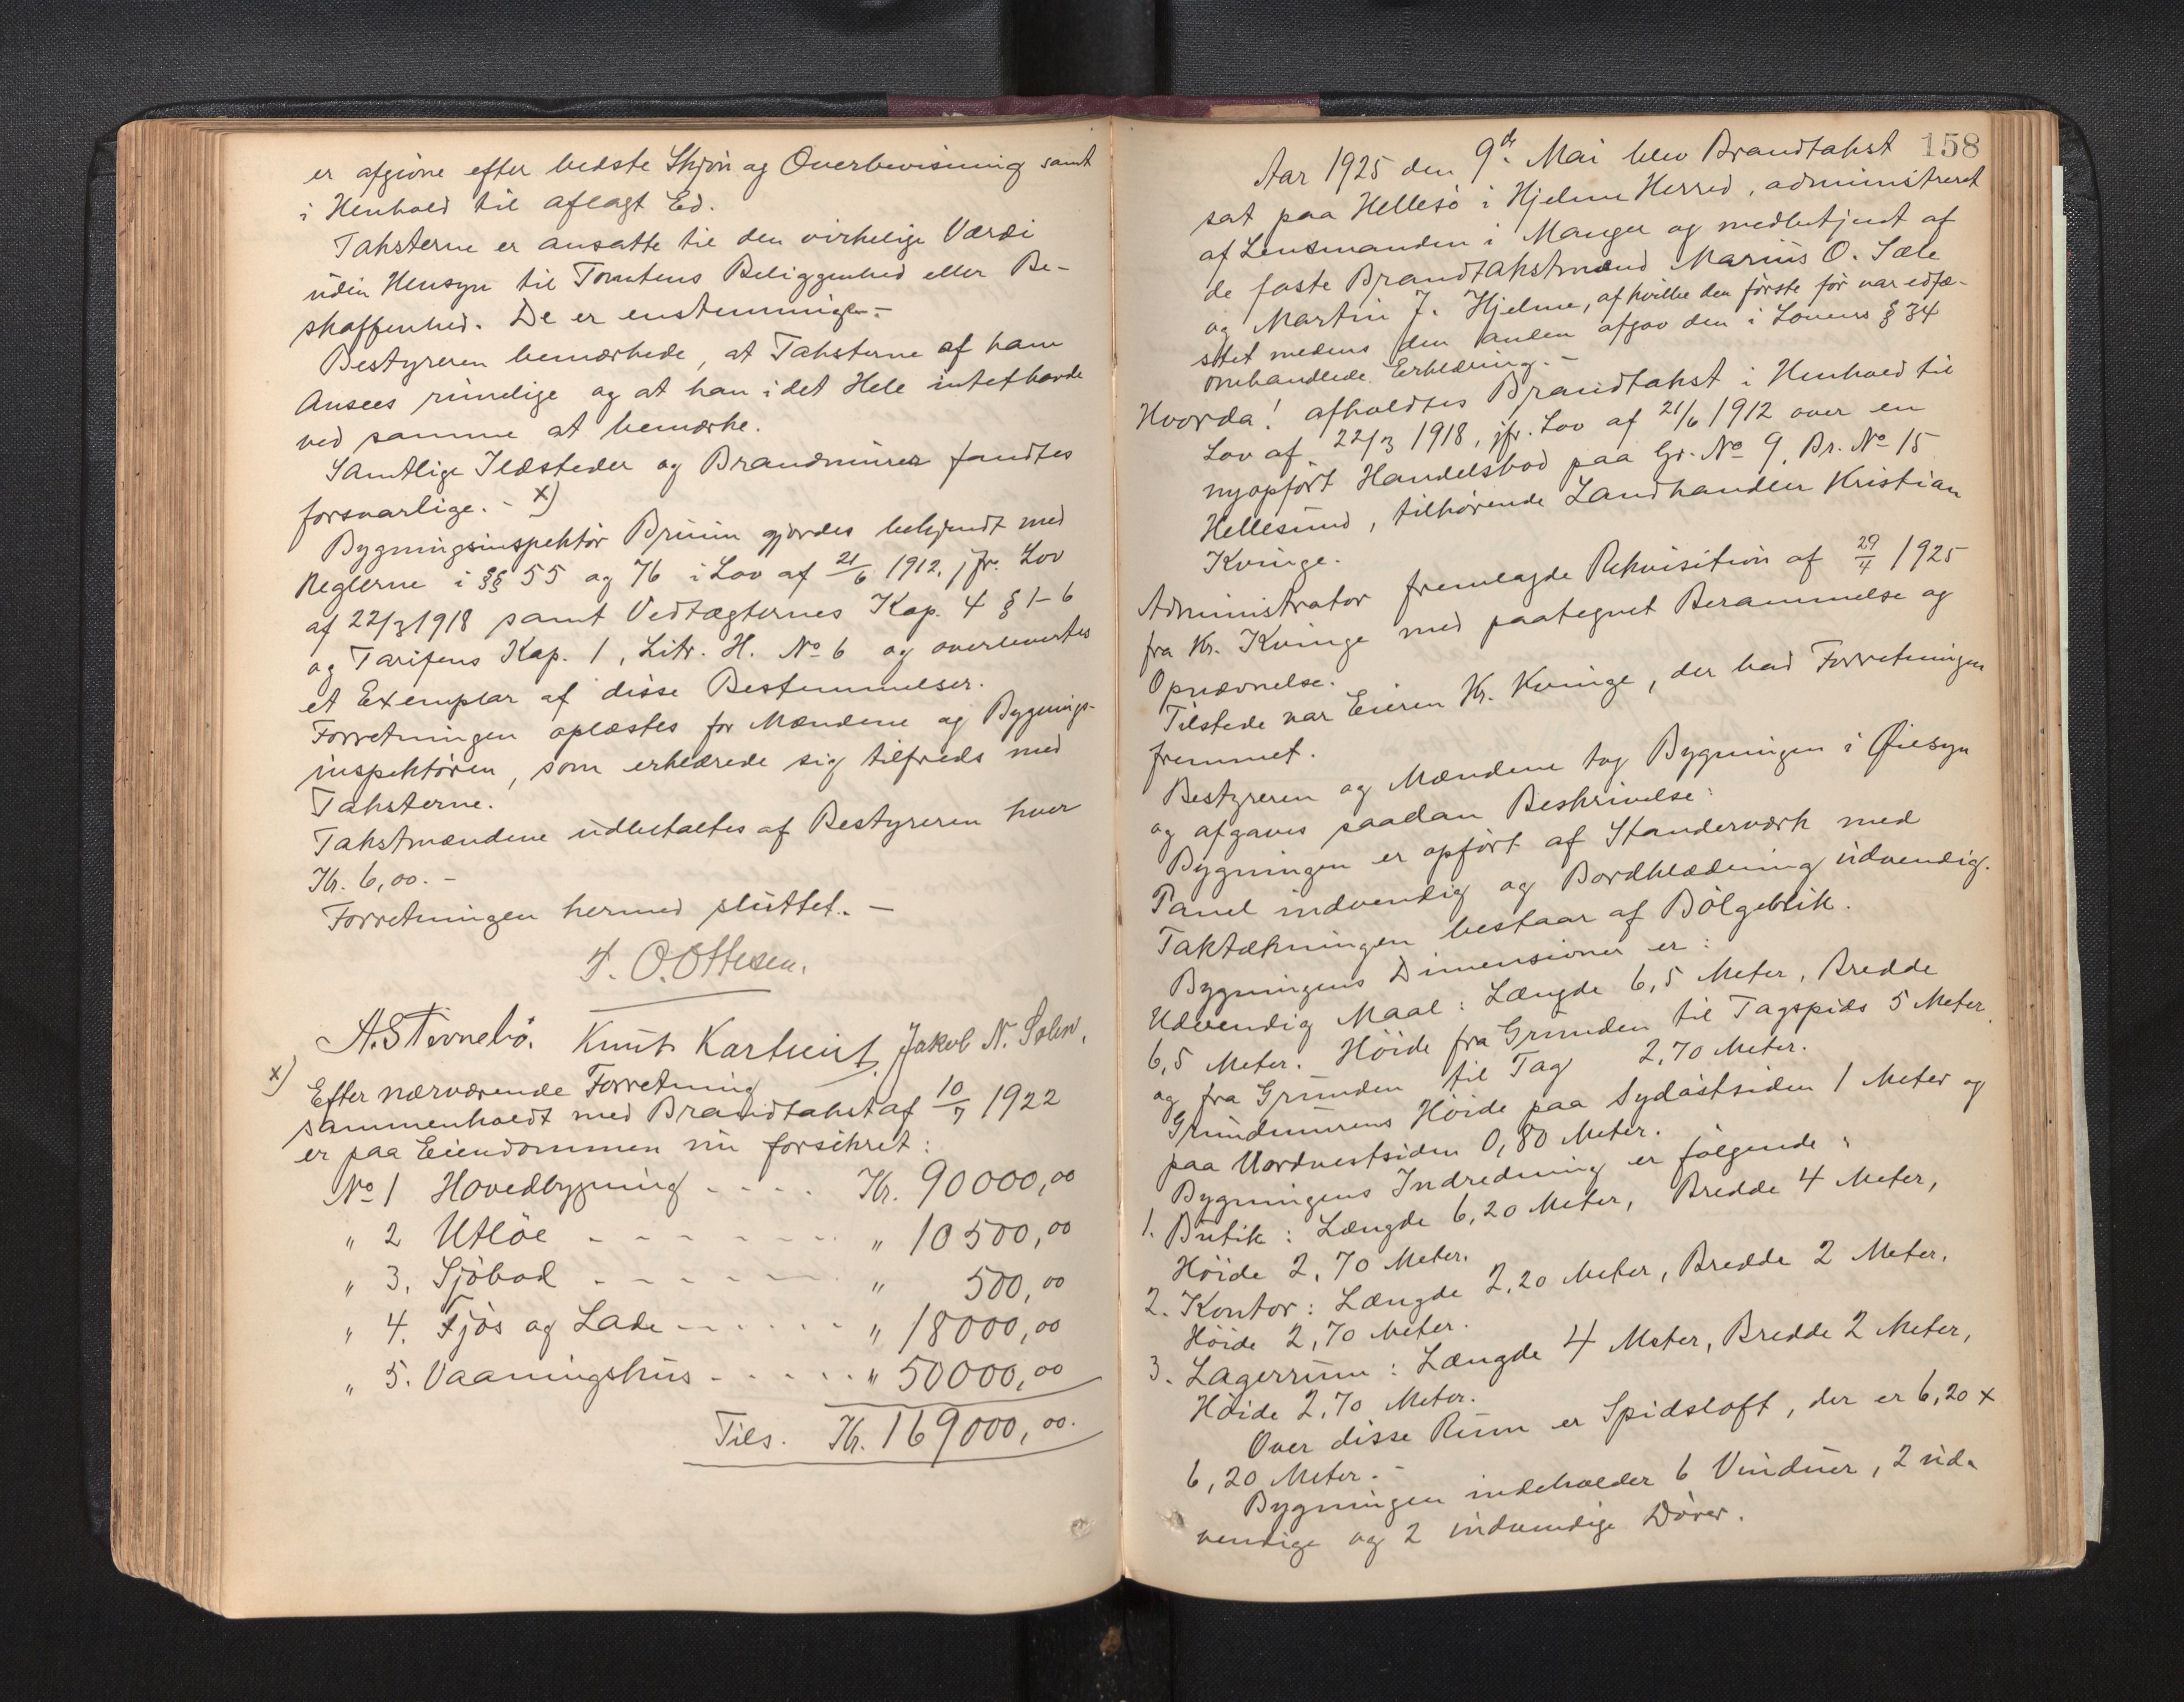 er afgivne efter bedste Skjøn og Overbevisning samt
i Henhold til aflagt Ed.
Taksterne er ansatte til den virkelige Værdi
uden Hensyn til Tomtens Beliggenhed eller Be-
skaffenhed. De er enstemmige.-
Bestyreren bemærkede, at Taksterne af ham
Ansees rimelige og at han i det Hele intet havde
ved samme at bemærke.
Samtlige Ildsteder og Brandmurer fandtes
forsvarlige. - x)
Bygningsinspektør Bruun gjordes bekjendt med
Reglerne i §§ 55 og 76 i Lov af 21/6 1912, jfr. Lov
af 22/3 1918 samt Vedtægternes Kap. 4 § 1-6
og Tarifens Kap. 1, Litr. H. No 6 og overlevertes
et Exemplar af disse Bestemmelser.
Forretningen oplæstes for Mændene og Bygnings-
inspektøren, som erklærede sig tilfreds med
Taksterne.
Takstmændene udbetaltes af Bestyreren hver
Kr. 6,00. -
Forretningen hermed sluttet. -
O. Ottesen.
A. S Tornebø. Knut Jakob N.
x) Efter nærværende Forretning
sammenholdt med Brandtakst af 10/7 1922
er paa Eiendommen nu forsikret:
No 1 Hovedbygning - - - - Kr. 90000,00
" 2 Utløe - - - - - - - " 10500,00
" 3. Sjøbod - - - - - - " 500,00
" 4. Fjøs og Lade - - - - - - " 18000,00
" 5. Vaaningshus - - - - - " 50000,00
Tils. Kr. 169000,00.
158
Aar 1925 den 9de Mai blev Brandtakst
sat paa Hellesø i Hjelme Herred, administreret
af Lensmanden i Manger og medbetjent af
de faste Brandtakstmænd Marius O. Sæle
og Martin J. Hjelme, af hvilke den første før var edfæ-
stet medens den anden afgav den i Lovens § 34
omhandlede Erklæring. -
Hvorda! afholdtes Brandtakst i Henhold til
Lov af 22/3 1918, jfr. Lov af 21/6 1912 over en
nyopført Handelsbod paa Gr. No 9, Br. No 15
Hellesund, tilhørende Landhandler Kristian
Kvinge.
Administrator fremlagde Rekvisition af 29/4 1925
fra Kr. Kvinge med paategnet Berammelse og
Opnævnelse.
Tilstede var Eieren Kr. Kvinge, der bad Forretningen
fremmet.
Bestyreren og Mændene tog Bygningen i Øiesyn
og afgaves saadan Beskrivelse:
Bygningen er opført af Standerværk med
Panel indvendig og Bordklædning udvendig.
Taktækningen bestaar af Bølgeblik.
Bygningens Dimensioner er:
Udvendig Maal: Længde 6,5 Meter, Bredde
6,5 Meter. Høide fra Grunden til Tagspids 5 Meter
og fra Grunden til Tag 2,70 Meter.
Grundmurens Høide paa Sydøstsiden 1 Meter og
paa Nordvestsiden 0,80 Meter.
Bygningens Indredning er følgende:
1. Butik: Længde 6,20 Meter, Bredde 4 Meter,
Høide 2,70 Meter.
2. Kontor: Længde 2,20 Meter, Bredde 2 Meter.
Høide 2,70 Meter.
3. Lagerrum: Længde 4 Meter, Bredde 2 Meter,
Høide 2,70 Meter.
Over disse Rum er Spidsloft, der er 6,20 x
6,20 Meter. -
Bygningen indeholder 6 Vinduer, 2 ud-
vendige og 2 indvendige Dører.